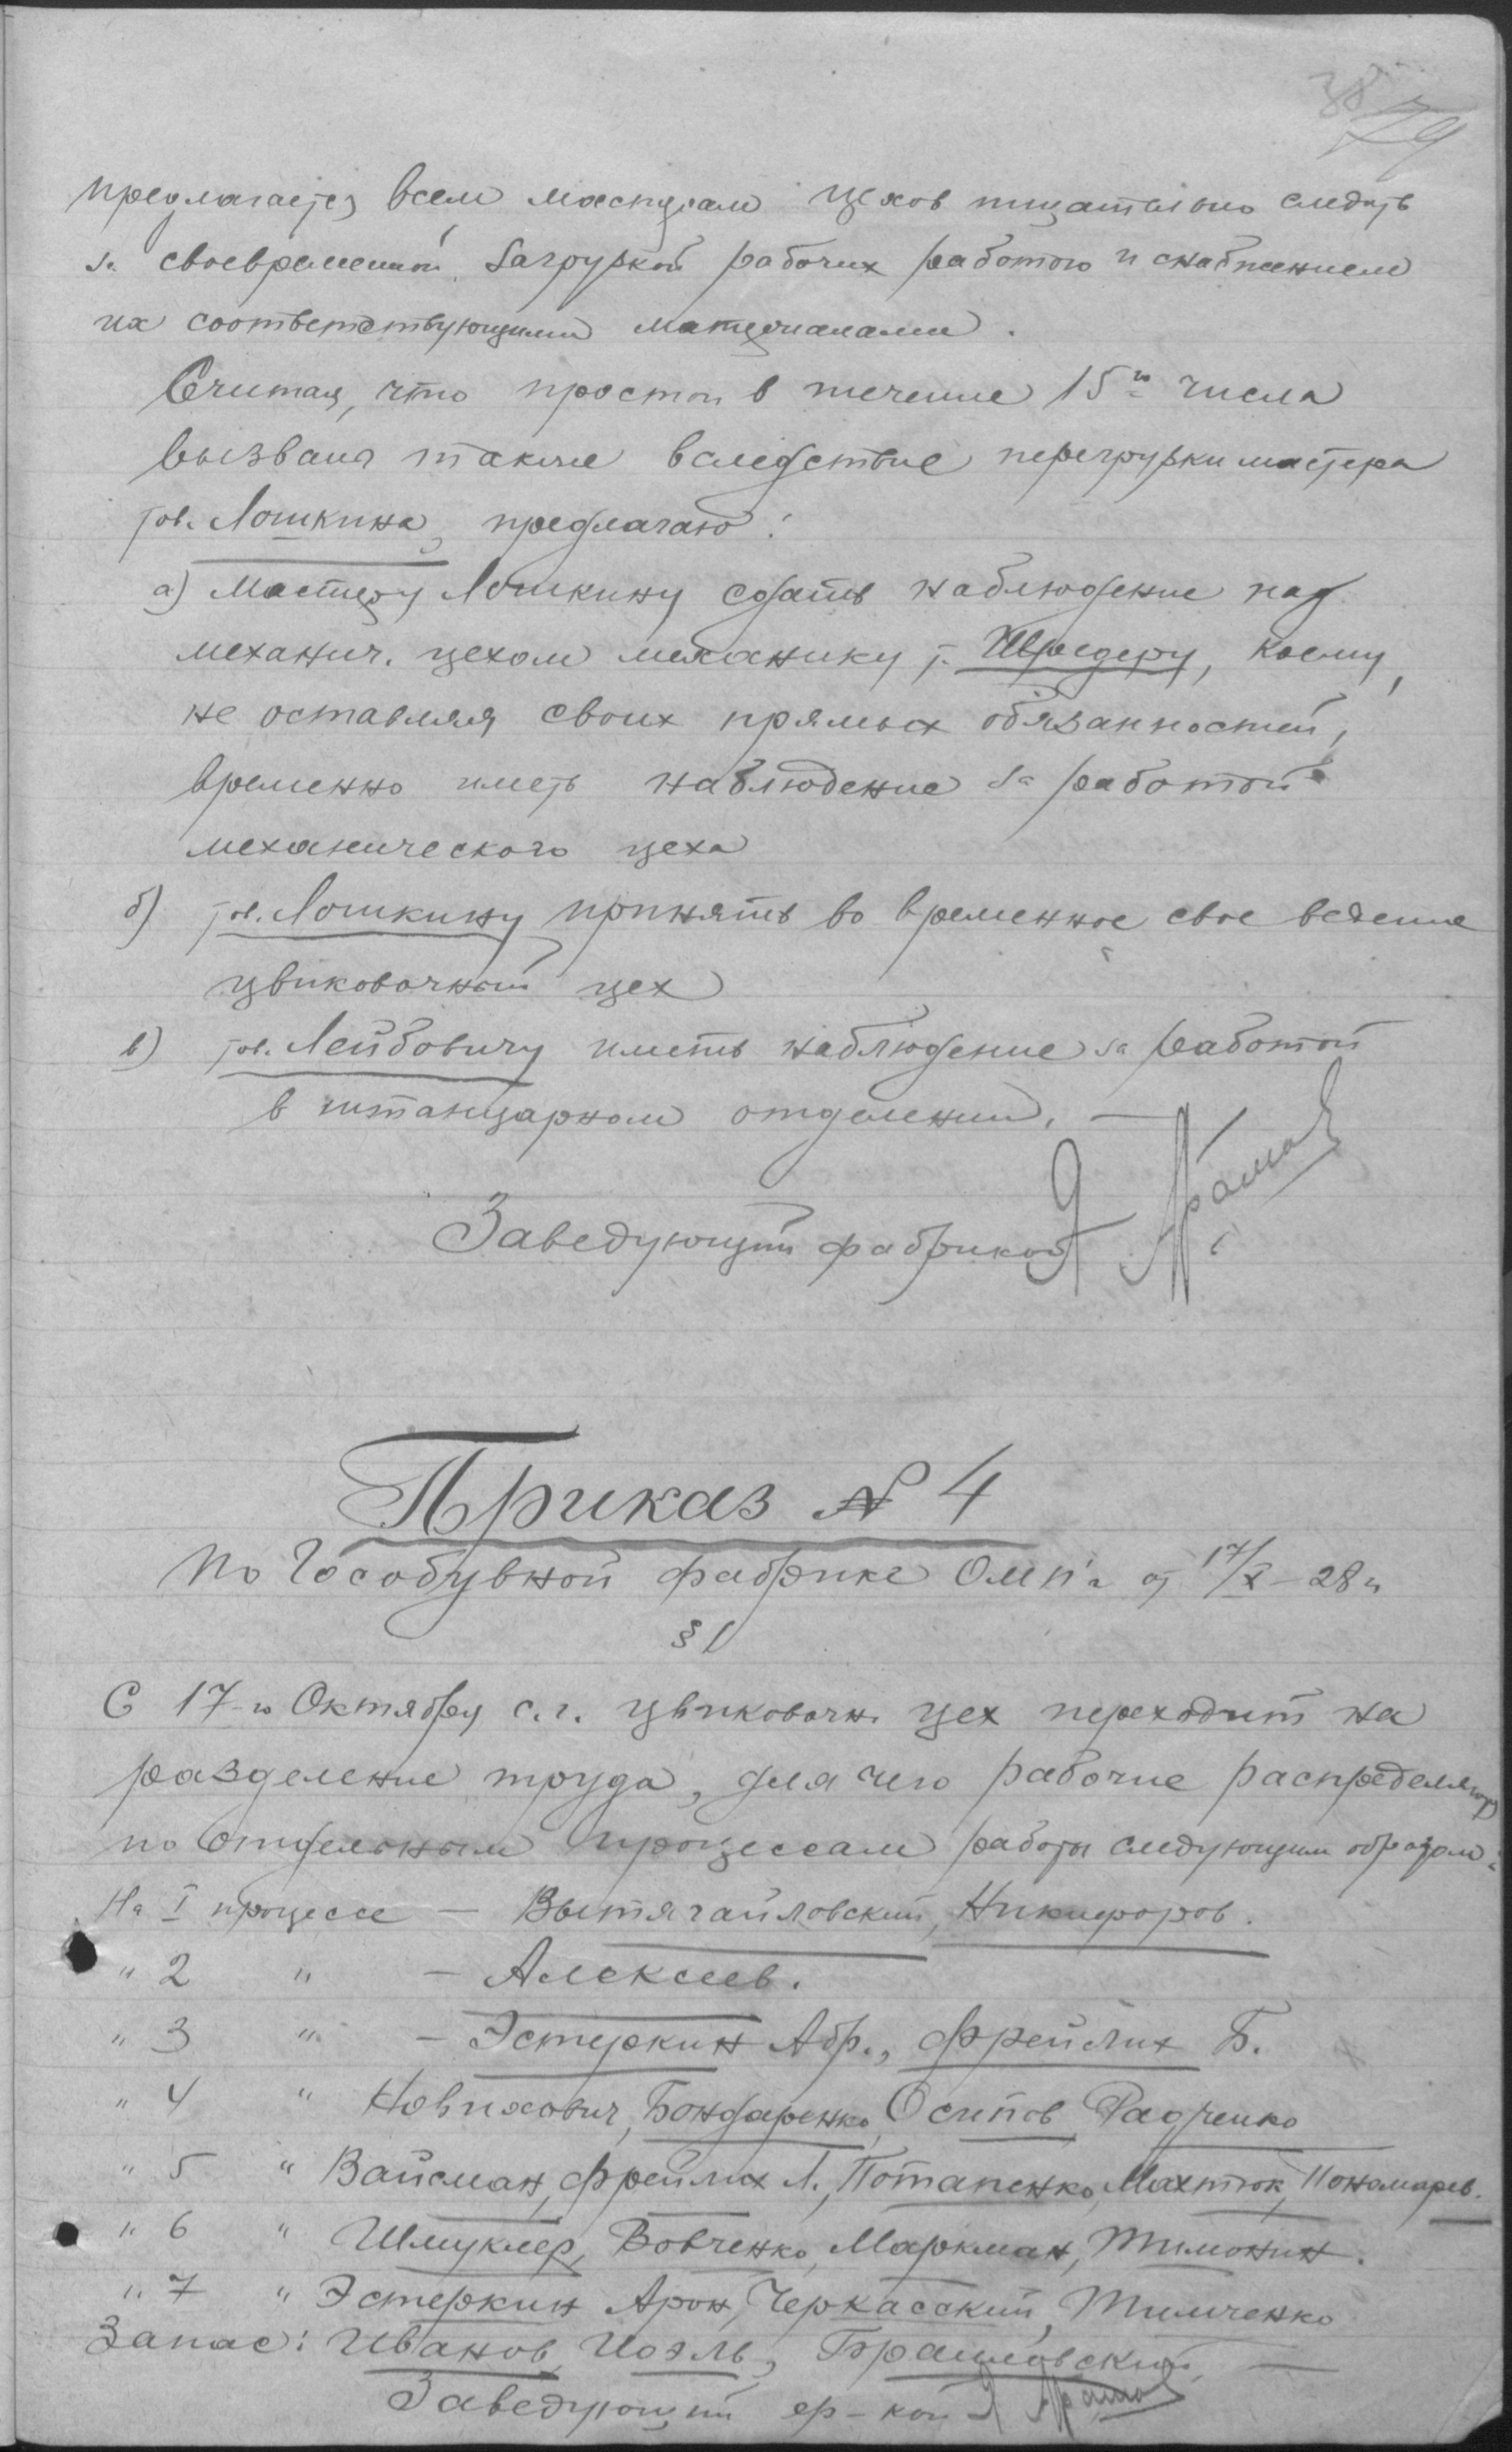 29
предлагается всем мастерам цехов тщательно следить
за своевременной загрузкой рабочих работою и снабжением
их соответствующими материалами.
Считая, что простои в течение 15го числа
вызваны также вследствие перегрузки мастера
тов. Лошкина, предлагаю:
а) Мастеру Лошкину сдать наблюдение над
механич. цехом механику т. Шредеру, коему,
не оставляя своих прямых обязанностей,
временно иметь наблюдение за работой
механического цеха
б) тов. Лошкину принять во временное свое ведение
цвиковочный цех
в) тов. Лейбовичу иметь наблюдение за работой
в штанцарном отделении. —
Заведующий фабрикой Я
Приказ № 4
По Гособувной фабрике от 17/X–28 г.
§ 1
С 17-го Октября с.г. цвиковочн. цех переходит на
разделение труда, для чего рабочие распределяются
по отдельным процессам работы следующим образом:
На I процессе — Вытягайловский, Никифоров.
" 2 " — Алексеев.
" 3 " — Эстеркин Абр., Фрейлих Б.
" 4 " Новихович, Бондаренко, Осипов Радченко
" 5 " Вайсман, Фрейлих Л., Потапенко, Махтюк, Пономарев.
" 6 " Шмуклер, Вовченко, Маркман, Тимонин.
" 7 " Эстеркин Арон, Черкасский, Тимченко
Запас: Иванов, Иоэль, Браиловский, —
Заведующий ф-кой Я